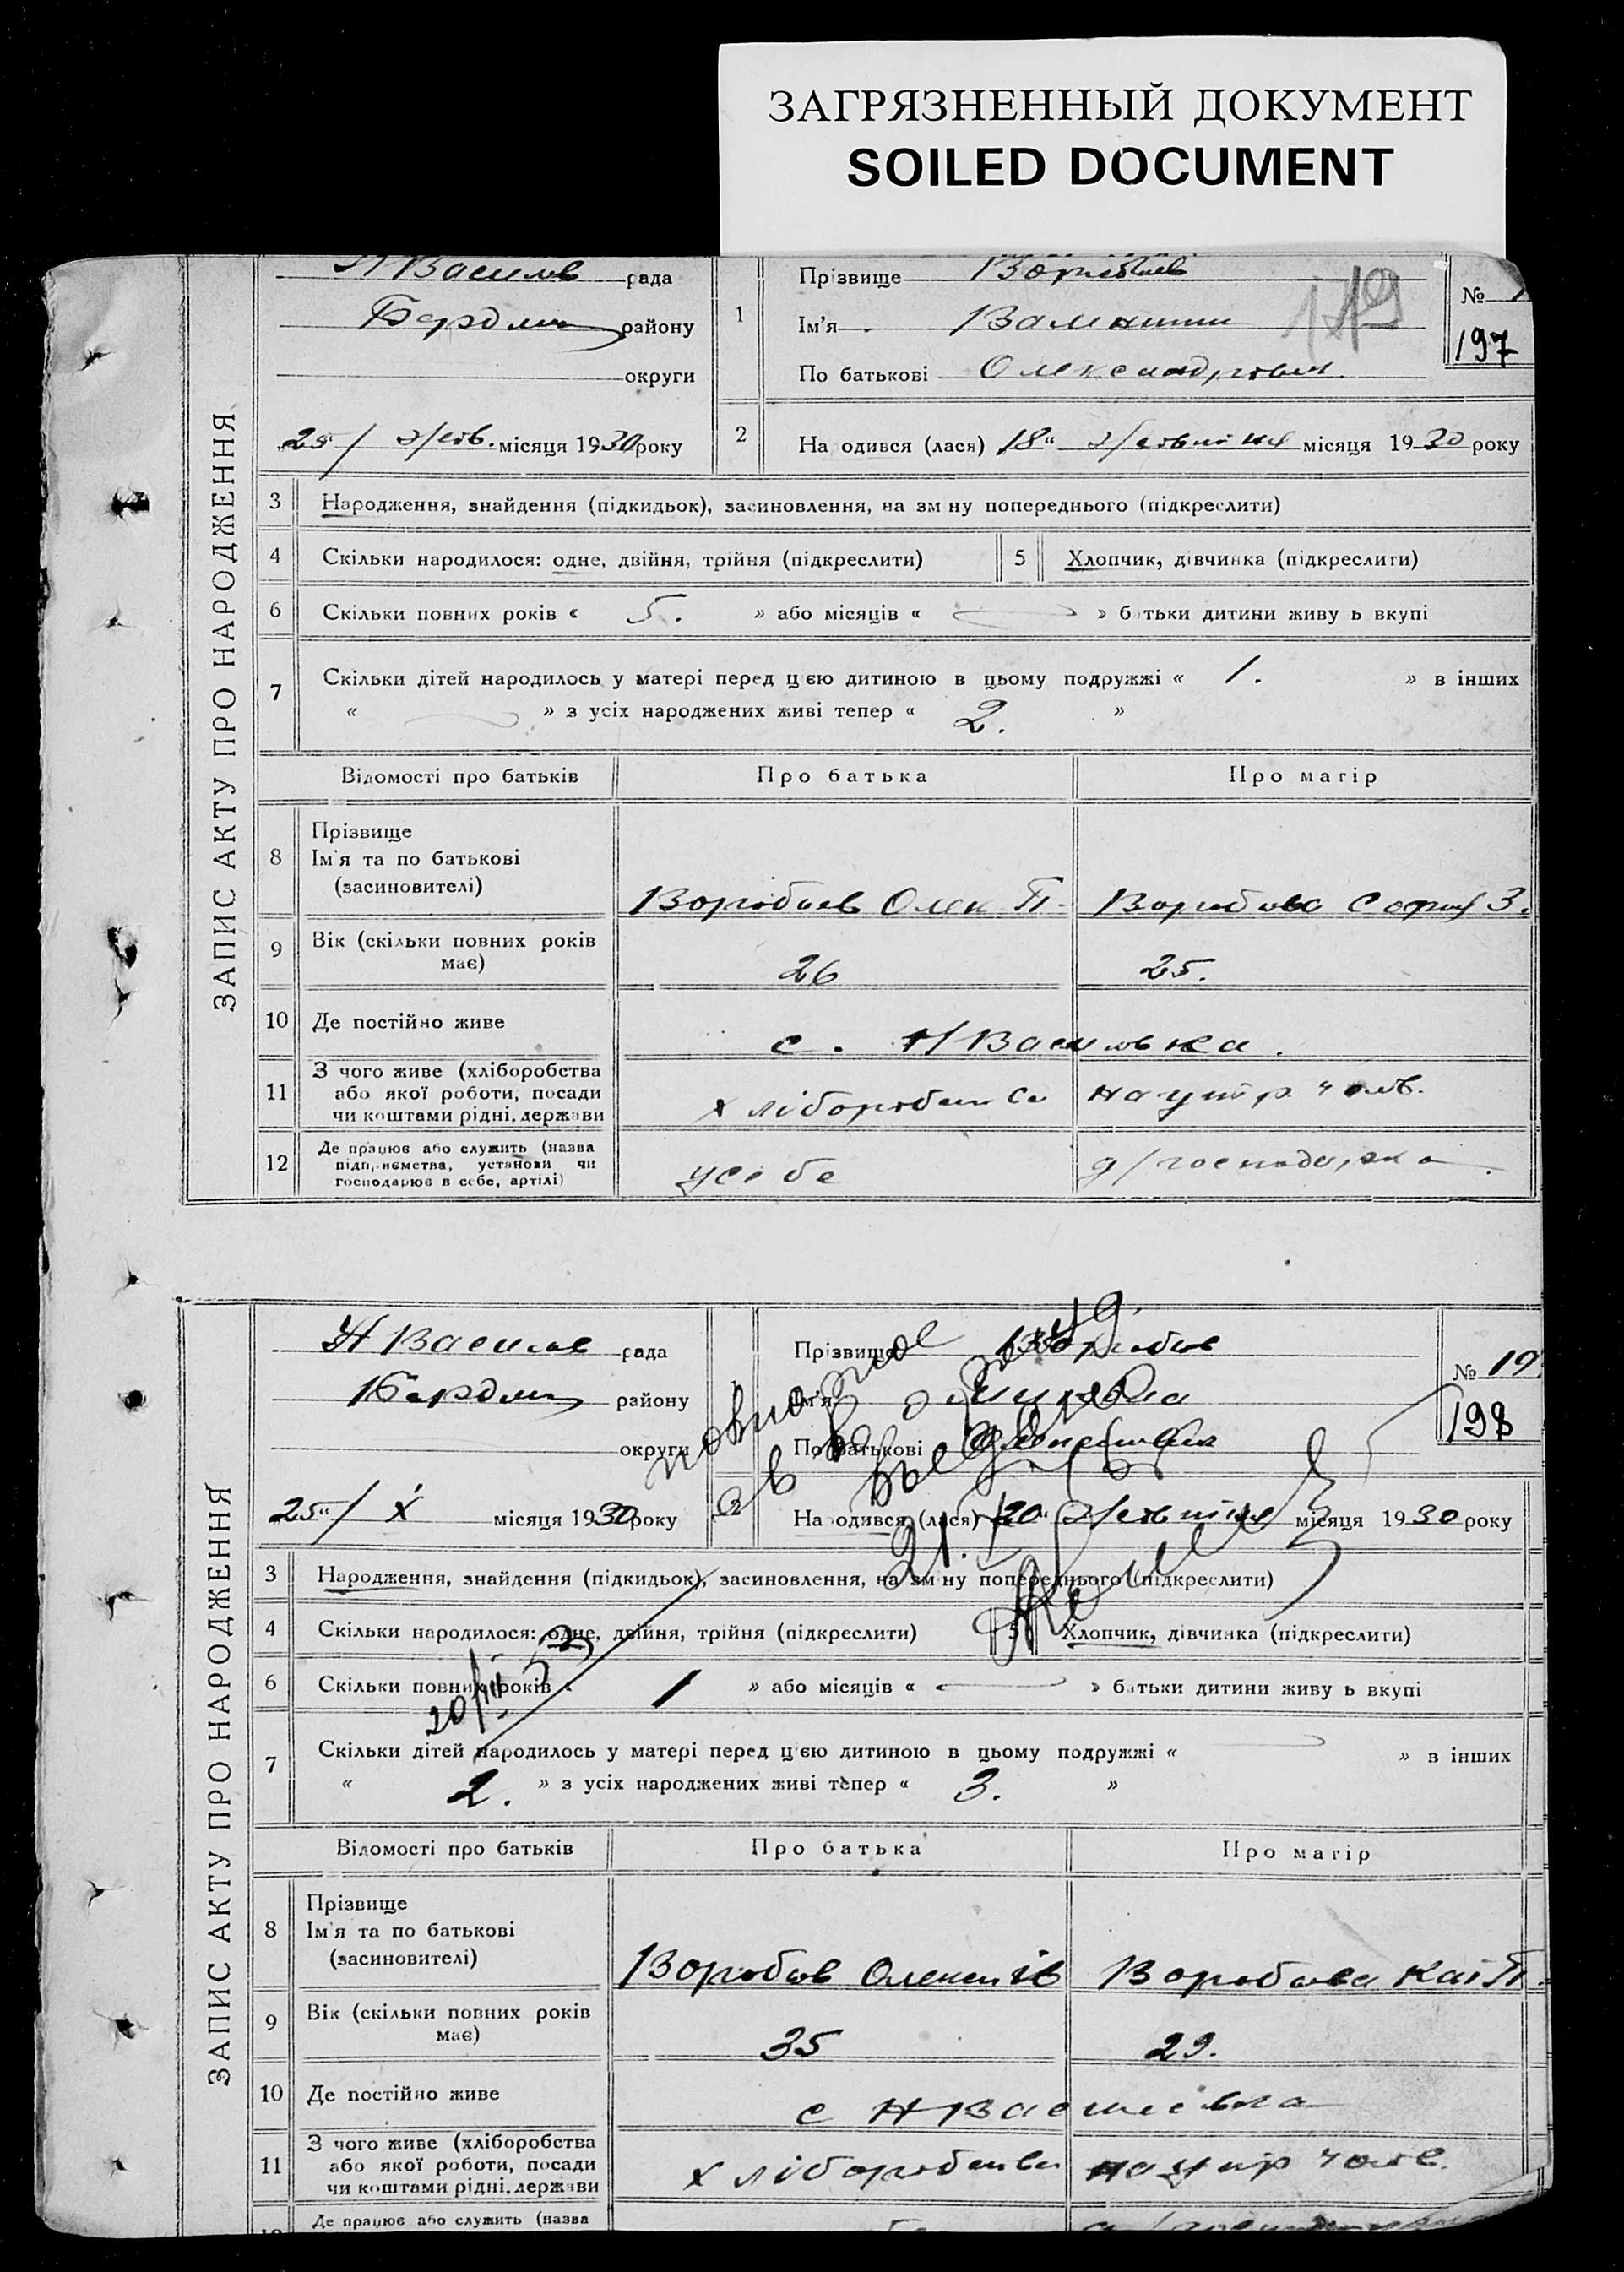 ЗАГРЯЗНЕННЫЙ ДОКУМЕНТ
SOILED DOCUMENT
ЗАПИС АКТУ ПРО НАРОДЖЕННЯ
Н Василів рада
Бердян району
округи
25/ Жовт. місяця 1930 року
1
Прізвище Воробьев
Ім'я
По батькові Олександрович.
№
197
2
На одився (лася) 18 Жовтня місяця 1930 року
3 Народження, знайдення (підкидьок), засиновлення, на зм ну попереднього (підкреслити)
4 Скільки народилося: одне, двійня, трійня (підкреслити)
5 Хлопчик, дівчинка (підкреслити)
6 Скільки повних років « 5. » або місяців « » батьки дитини живу ь вкупі
7 Скільки дітей народилось у матері перед цією дитиною в цьому подружжі « 1. » в інших
« » з усіх народжених живі тепер « 2. »
Відомості про батьків Про батька Про матір
8 Прізвище
Ім'я та по батькові
(засиновителі)
Воробьев Олек П. Воробьова Софія З.
9 Вік (скільки повних років
має)
26 25.
10 Де постійно живе с. Н/Василівка.
11 З чого живе (хліборобства
або якої роботи, посади
чи коштами рідні, держави
хліборобства на утр. чолов.
12 Де працює або служить (назва
підприємства, установи чи
господарює в себе, артілі)
у себе д/господарка
ЗАПИС АКТУ ПРО НАРОДЖЕННЯ
Н Василів рада
Бердян району
округи
25/ X місяця 1930 року
Прізвище Воробьев
Ім'я Микола
По батькові Олексієвич
№ 19
198
На одився (лася) 20 Жовтня місяця 1930 року
3 Народження, знайдення (підкидьок), засиновлення, на зм ну попереднього (підкреслити)
4 Скільки народилося: одне, двійня, трійня (підкреслити)
5 Хлопчик, дівчинка (підкреслити)
20/III 53
6 Скільки повних років « 1 » або місяців « » батьки дитини живу ь вкупі
7 Скільки дітей народилось у матері перед цією дитиною в цьому подружжі « » в інших
« 2. » з усіх народжених живі тепер « 3. »
Відомості про батьків Про батька Про матір
8 Прізвище
Ім'я та по батькові
(засиновителі)
Воробьев Олексій Воробьева Кат П.
9 Вік (скільки повних років
має)
35 29.
10 Де постійно живе с Н Василівка
11 З чого живе (хліборобства
або якої роботи, посади
чи коштами рідні, держави
хліборобства на утр чолов.
Де працює або служить (назва